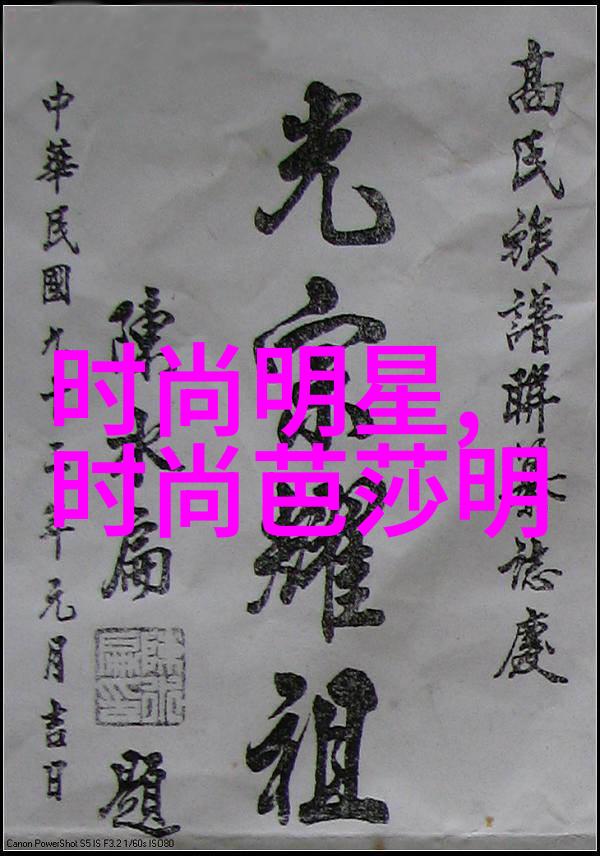 高氏族譜聯誌慶
光宗耀祖
陳水扁題
陳水扁印
中華民國九十二年元月吉日
时尚明星,
时尚芭莎明
Canon PowerShot S5 IS F3.2 1/60s ISO80